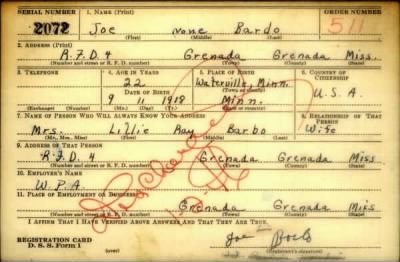 SERIAL NUMBER 1. NAME (Print) ORDER NUMBER
2072 Joe None Bardo 511
(First) (Middle) (Last)
2. ADDRESS (Print)
R.F.D 4 Grenada Grenada Miss.
(Number and street or R. F. D. number) (Town) (County) (State)
3. TELEPHONE 4. AGE IN YEARS 5. PLACE OF BIRTH 6. COUNTRY OF CITIZENSHIP
22 Waterville, Minn.
DATE OF BIRTH (Town or county)
9 11 1918 Minn. U.S.A.
(Exchange) (Number) (Mo.) (Day) (Yr.) (State or country)
7. NAME OF PERSON WHO WILL ALWAYS KNOW YOUR ADDRESS 8. RELATIONSHIP OF THAT PERSON
Mrs. Lillie Ray Barbo Wife
(Mr., Mrs., Miss) (First) (Middle) (Last)
9. ADDRESS OF THAT PERSON
R.F.D. 4 Grenada Grenada Miss
(Number and street or R. F. D. number) (Town) (County) (State)
10. EMPLOYER'S NAME
W.P.A.
11. PLACE OF EMPLOYMENT OR BUSINESS
Grenada Grenada Miss
(Number and street or R. F. D. number) (Town) (County) (State)
I AFFIRM THAT I HAVE VERIFIED ABOVE ANSWERS AND THAT THEY ARE TRUE.
REGISTRATION CARD
D. S. S. Form 1 Joe
(Registrant's signature)